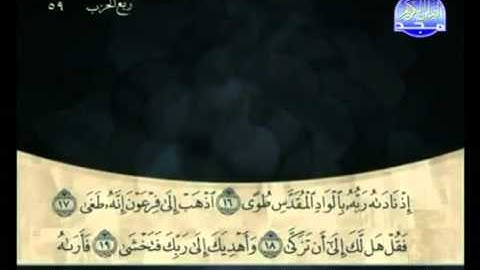 ربع الحزب ٥٩
القرآن الكريم
مجد
إِذْ نَادَىٰهُ رَبُّهُۥ بِٱلْوَادِ ٱلْمُقَدَّسِ طُوًى ١٦ ٱذْهَبْ إِلَىٰ فِرْعَوْنَ إِنَّهُۥ طَغَىٰ ١٧
فَقُلْ هَل لَّكَ إِلَىٰٓ أَن تَزَكَّىٰ ١٨ وَأَهْدِيَكَ إِلَىٰ رَبِّكَ فَتَخْشَىٰ ١٩ فَأَرَىٰهُ